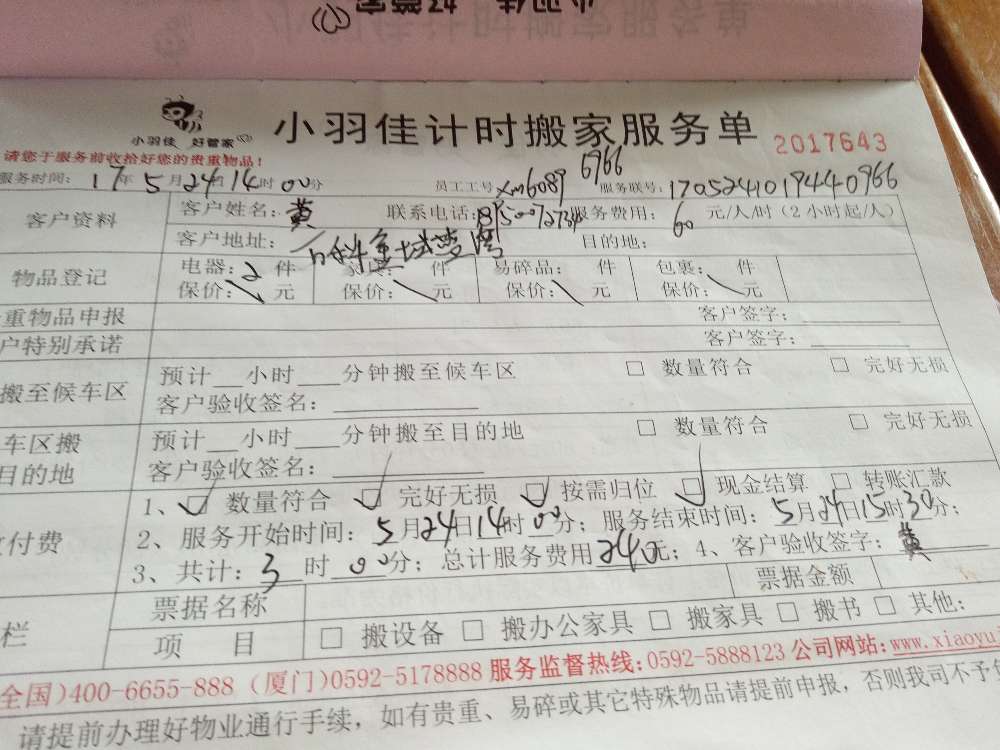 小羽佳 好管家
小羽佳计时搬家服务单 2017643
请您于服务前收拾好您的贵重物品！
6966
服务时间: 17年5月24日14时00分 员工工号xm6089 服务联号: 17052410194440966
客户资料 客户姓名: 黄 联系电话: 服务费用: 60 元/人/时（2小时起/人）
客户地址: 万科金域 湾 目的地:
物品登记 电器: 2 件 件 易碎品: 件 包裹: 件
保价: 元 保价: 元 保价: 元 保价: 元
重物品申报 客户签字:
户特别承诺 客户签字:
搬至候车区 预计__小时___分钟搬至候车区 □ 数量符合 □ 完好无损
客户验收签名:
车区搬 预计__小时___分钟搬至目的地 □ 数量符合 □ 完好无损
目的地 客户验收签名:
1、☑ 数量符合 ☑ 完好无损 ☑ 按需归位 ☑ 现金结算 □ 转账汇款
付费 2、服务开始时间: 5月24日14时00分; 服务结束时间: 5月24日15时30分;
3、共计: 3时00分; 总计服务费用240元; 4、客户验收签字: 黄
栏 票据名称 票据金额
项 目 □ 搬设备 □ 搬办公家具 □ 搬家具 □ 搬书 □ 其他:
全国)400-6655-888 (厦门)0592-5178888 服务监督热线: 0592-5888123 公司网站: www.xiaoyu
请提前办理好物业通行手续，如有贵重、易碎或其它特殊物品请提前申报，否则我司不予